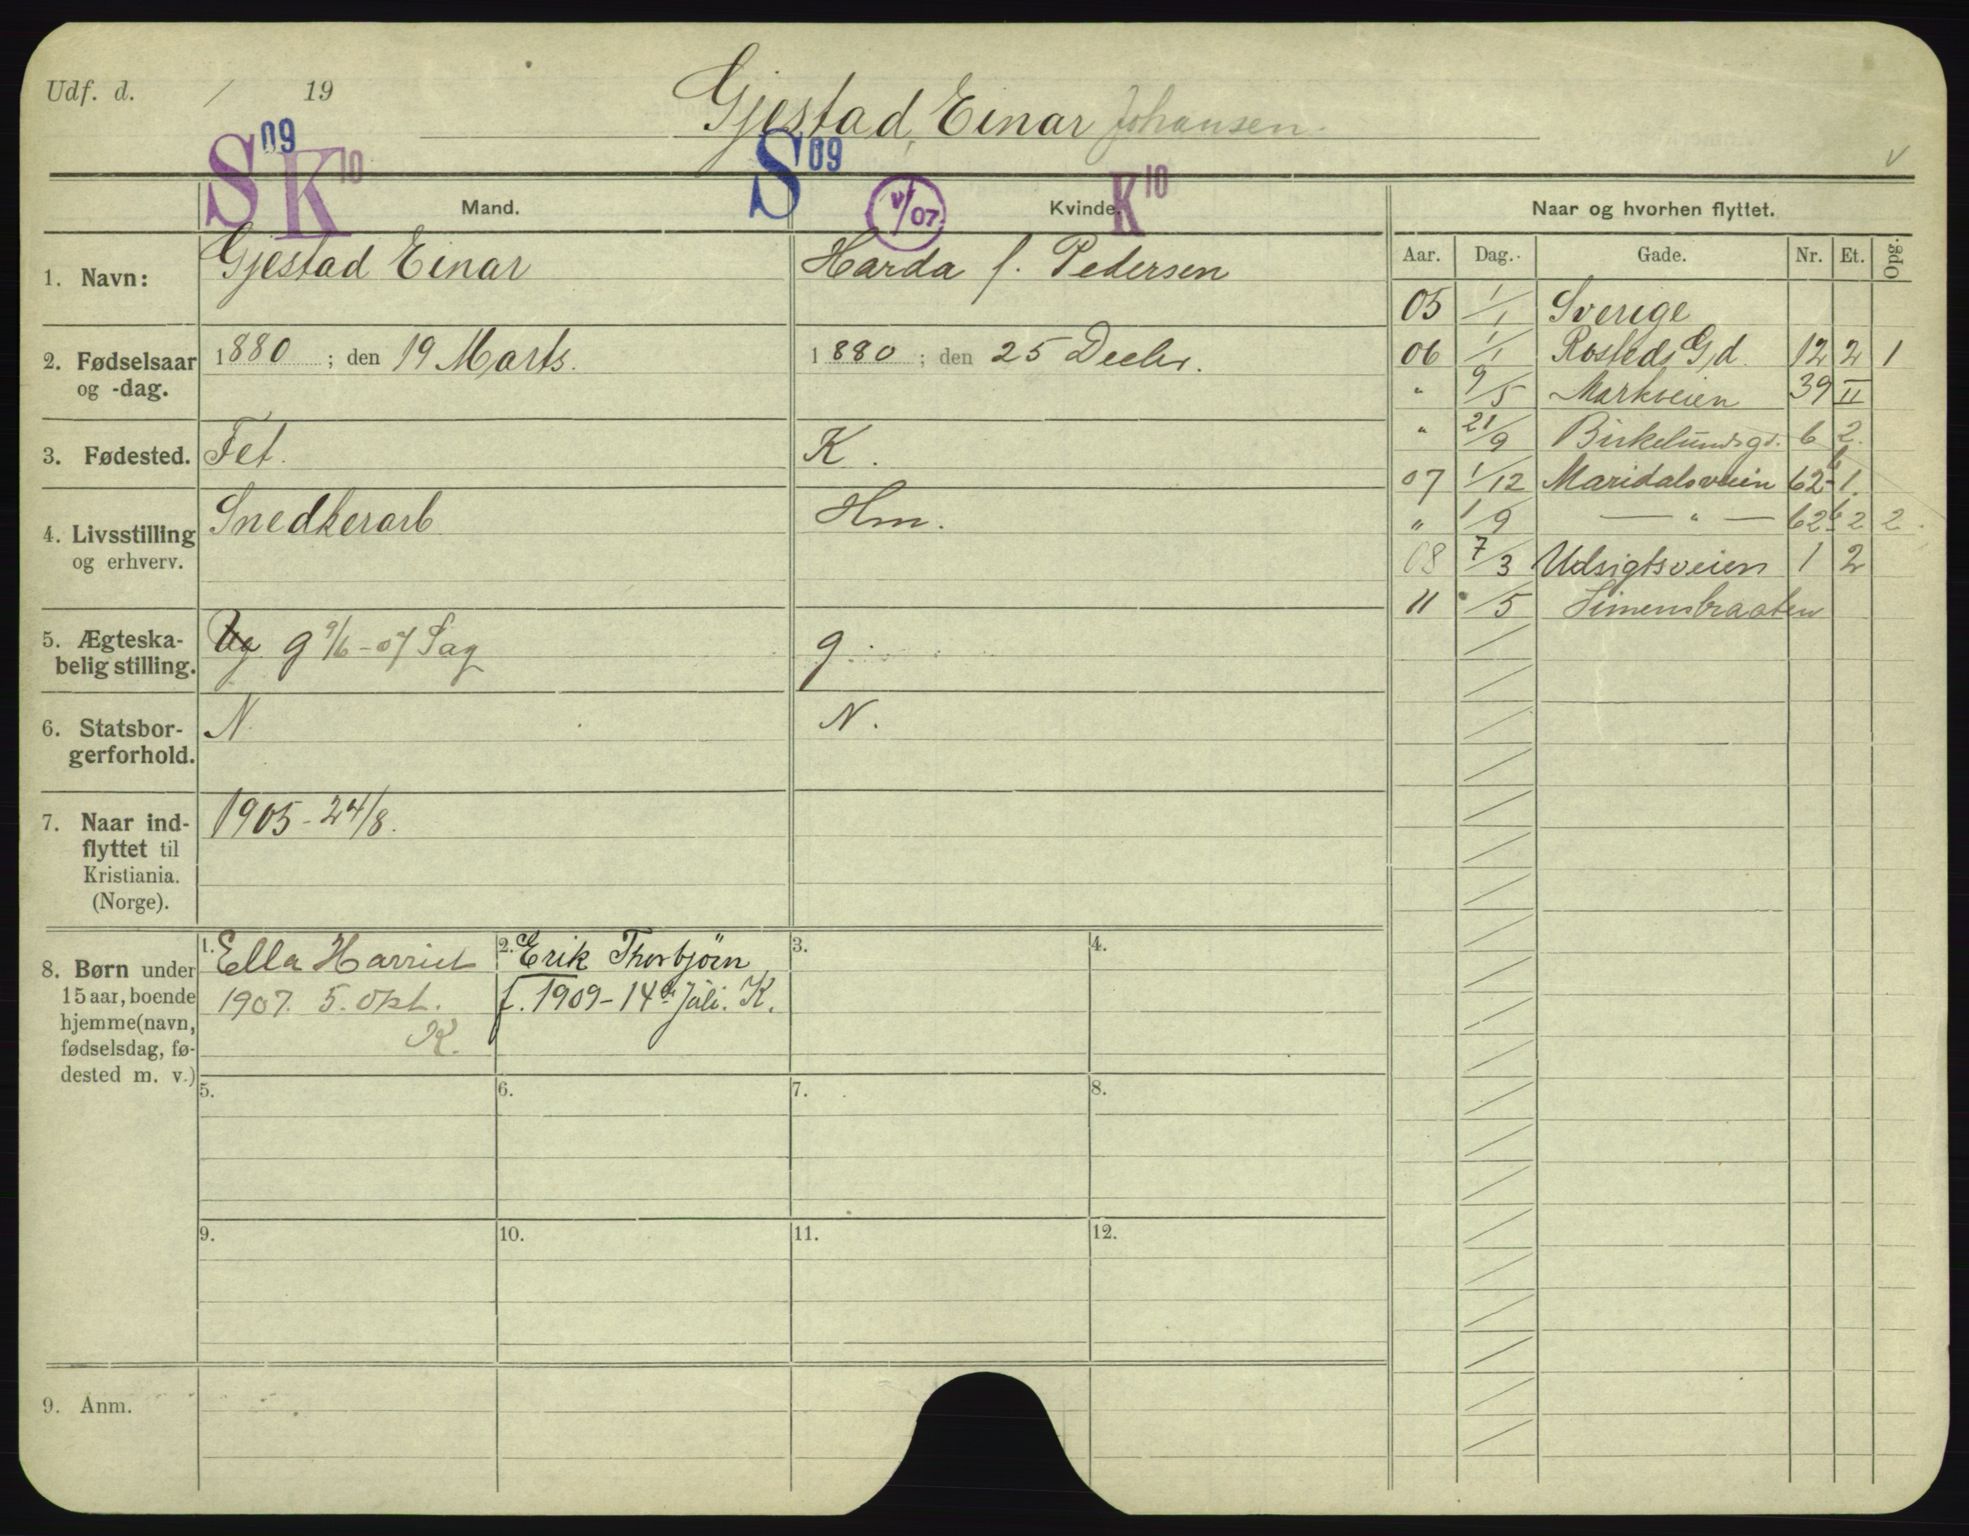 Udf. d. / 19
Gjestad, Einar Johansen.
S 09 K 10 S 09 v/07 K 10 v
Mand. Kvinde. Naar og hvorhen flyttet.
Aar. Dag. Gade. Nr. Et. Opg.
1. Navn: Gjestad Einar Harda f. Pedersen
2. Fødselsaar og -dag. 1880 ; den 19 Marts. 1880 ; den 25 Decbr.
3. Fødested. Fet. K.
4. Livsstilling og erhverv. Snedkerarb. Hm.
5. Ægteska-
belig stilling. Ug g 9/6-07 Sag g.
6. Statsbor-
gerforhold. N. N.
7. Naar ind-
flyttet til
Kristiania.
(Norge). 1905-24/8.
8. Børn under
15 aar, boende
hjemme (navn,
fødselsdag, fø-
dested m. v.)
1. Ella Harriet
1907. 5. Okt.
K.
2. Erik Thorbjörn
f. 1909-14de Juli. K.
3.
4.
5.
6.
7.
8.
9.
10.
11.
12.
9. Anm.
05 1/1 Sverige
06 1/1 Rosteds Gd. 12 2 1
" 9/5 Markveien 39 II
" 21/9 Birkelundsgd. 6 2.
07 1/12 Maridalsveien 62b 1.
" 1/9 — " — 62b 2 2.
08 7/3 Udsigtsveien 1 2
11 /5 Simensbraaten